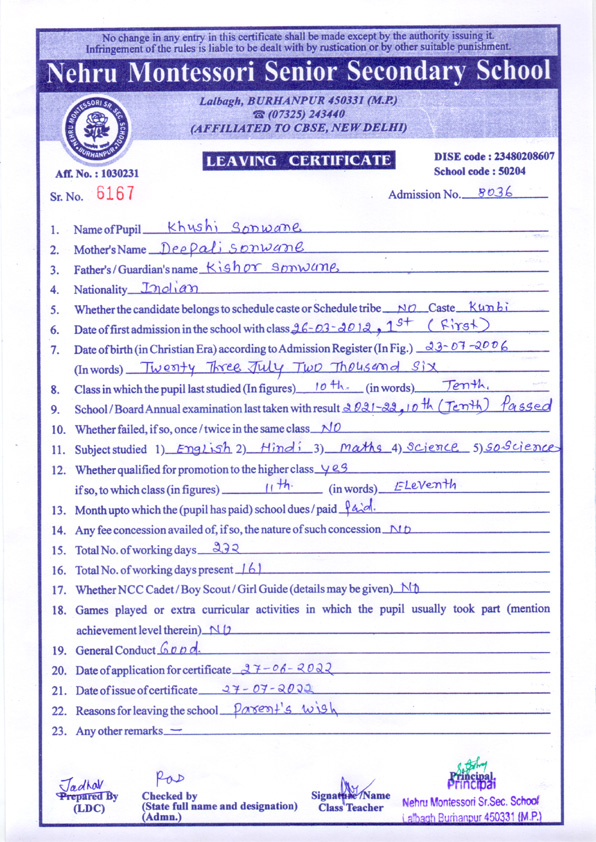 No change in any entry in this certificate shall be made except by the authority issuing it.
Infringement of the rules is liable to be dealt with by rustication or by other suitable punishment.
Nehru Montessori Senior Secondary School
Lalbagh, BURHANPUR 450331 (M.P.)
☎ (07325) 243440
(AFFILIATED TO CBSE, NEW DELHI)
NEHRU MONTESSORI SR. SEC. SCHOOL
BURHANPUR
LEAVING CERTIFICATE
DISE code : 23480208607
School code : 50204
Aff. No. : 1030231
Sr. No. 6167
Admission No. 8036
1. Name of Pupil Khushi Sonwane
2. Mother's Name Deepali Sonwane
3. Father's / Guardian's name Kishor Sonwane
4. Nationality Indian
5. Whether the candidate belongs to schedule caste or Schedule tribe NO Caste Kunbi
6. Date of first admission in the school with class 26-03-2012, 1st (First)
7. Date of birth (in Christian Era) according to Admission Register (In Fig.) 23-07-2006
(In words) Twenty Three July Two Thousand Six
8. Class in which the pupil last studied (In figures) 10th. (in words) Tenth.
9. School / Board Annual examination last taken with result 2021-22, 10th (Tenth) Passed
10. Whether failed, if so, once / twice in the same class NO
11. Subject studied 1) English 2) Hindi 3) Maths 4) Science 5) So Science
12. Whether qualified for promotion to the higher class yes
if so, to which class (in figures) 11th. (in words) Eleventh
13. Month upto which the (pupil has paid) school dues / paid Paid.
14. Any fee concession availed of, if so, the nature of such concession NO
15. Total No. of working days 232
16. Total No. of working days present 161
17. Whether NCC Cadet / Boy Scout / Girl Guide (details may be given) NO
18. Games played or extra curricular activities in which the pupil usually took part (mention
achievement level therein) NO
19. General Conduct Good.
20. Date of application for certificate 27-06-2022
21. Date of issue of certificate 27-07-2022
22. Reasons for leaving the school Parent's Wish
23. Any other remarks —
Jadhav
Prepared By
(LDC)
Checked by
(State full name and designation)
(Admn.)
Signature/Name
Class Teacher
Principal
Principal
Nehru Montessori Sr.Sec. School
Lalbagh Burhanpur 450331 (M.P.)